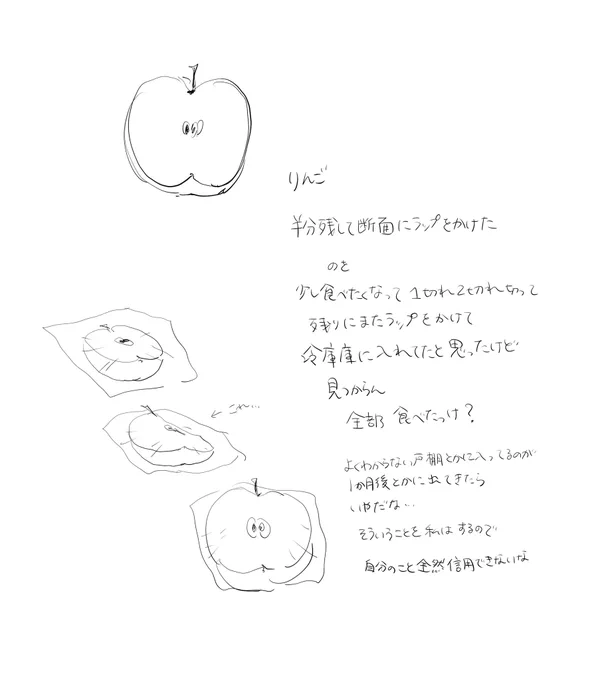 りんご
半分残して断面にラップをかけた
のを
少し食べたくなって 1切れ2切れ切って
残りにまたラップをかけて
冷庫庫に入れてたと思ったけど
見つからん
全部 食べたっけ？
これ…
よくわからない戸棚とかに入ってるのが
1か月後とかに出てきたら
いやだな…
そういうことを私はするので
自分のこと全然信用できないな